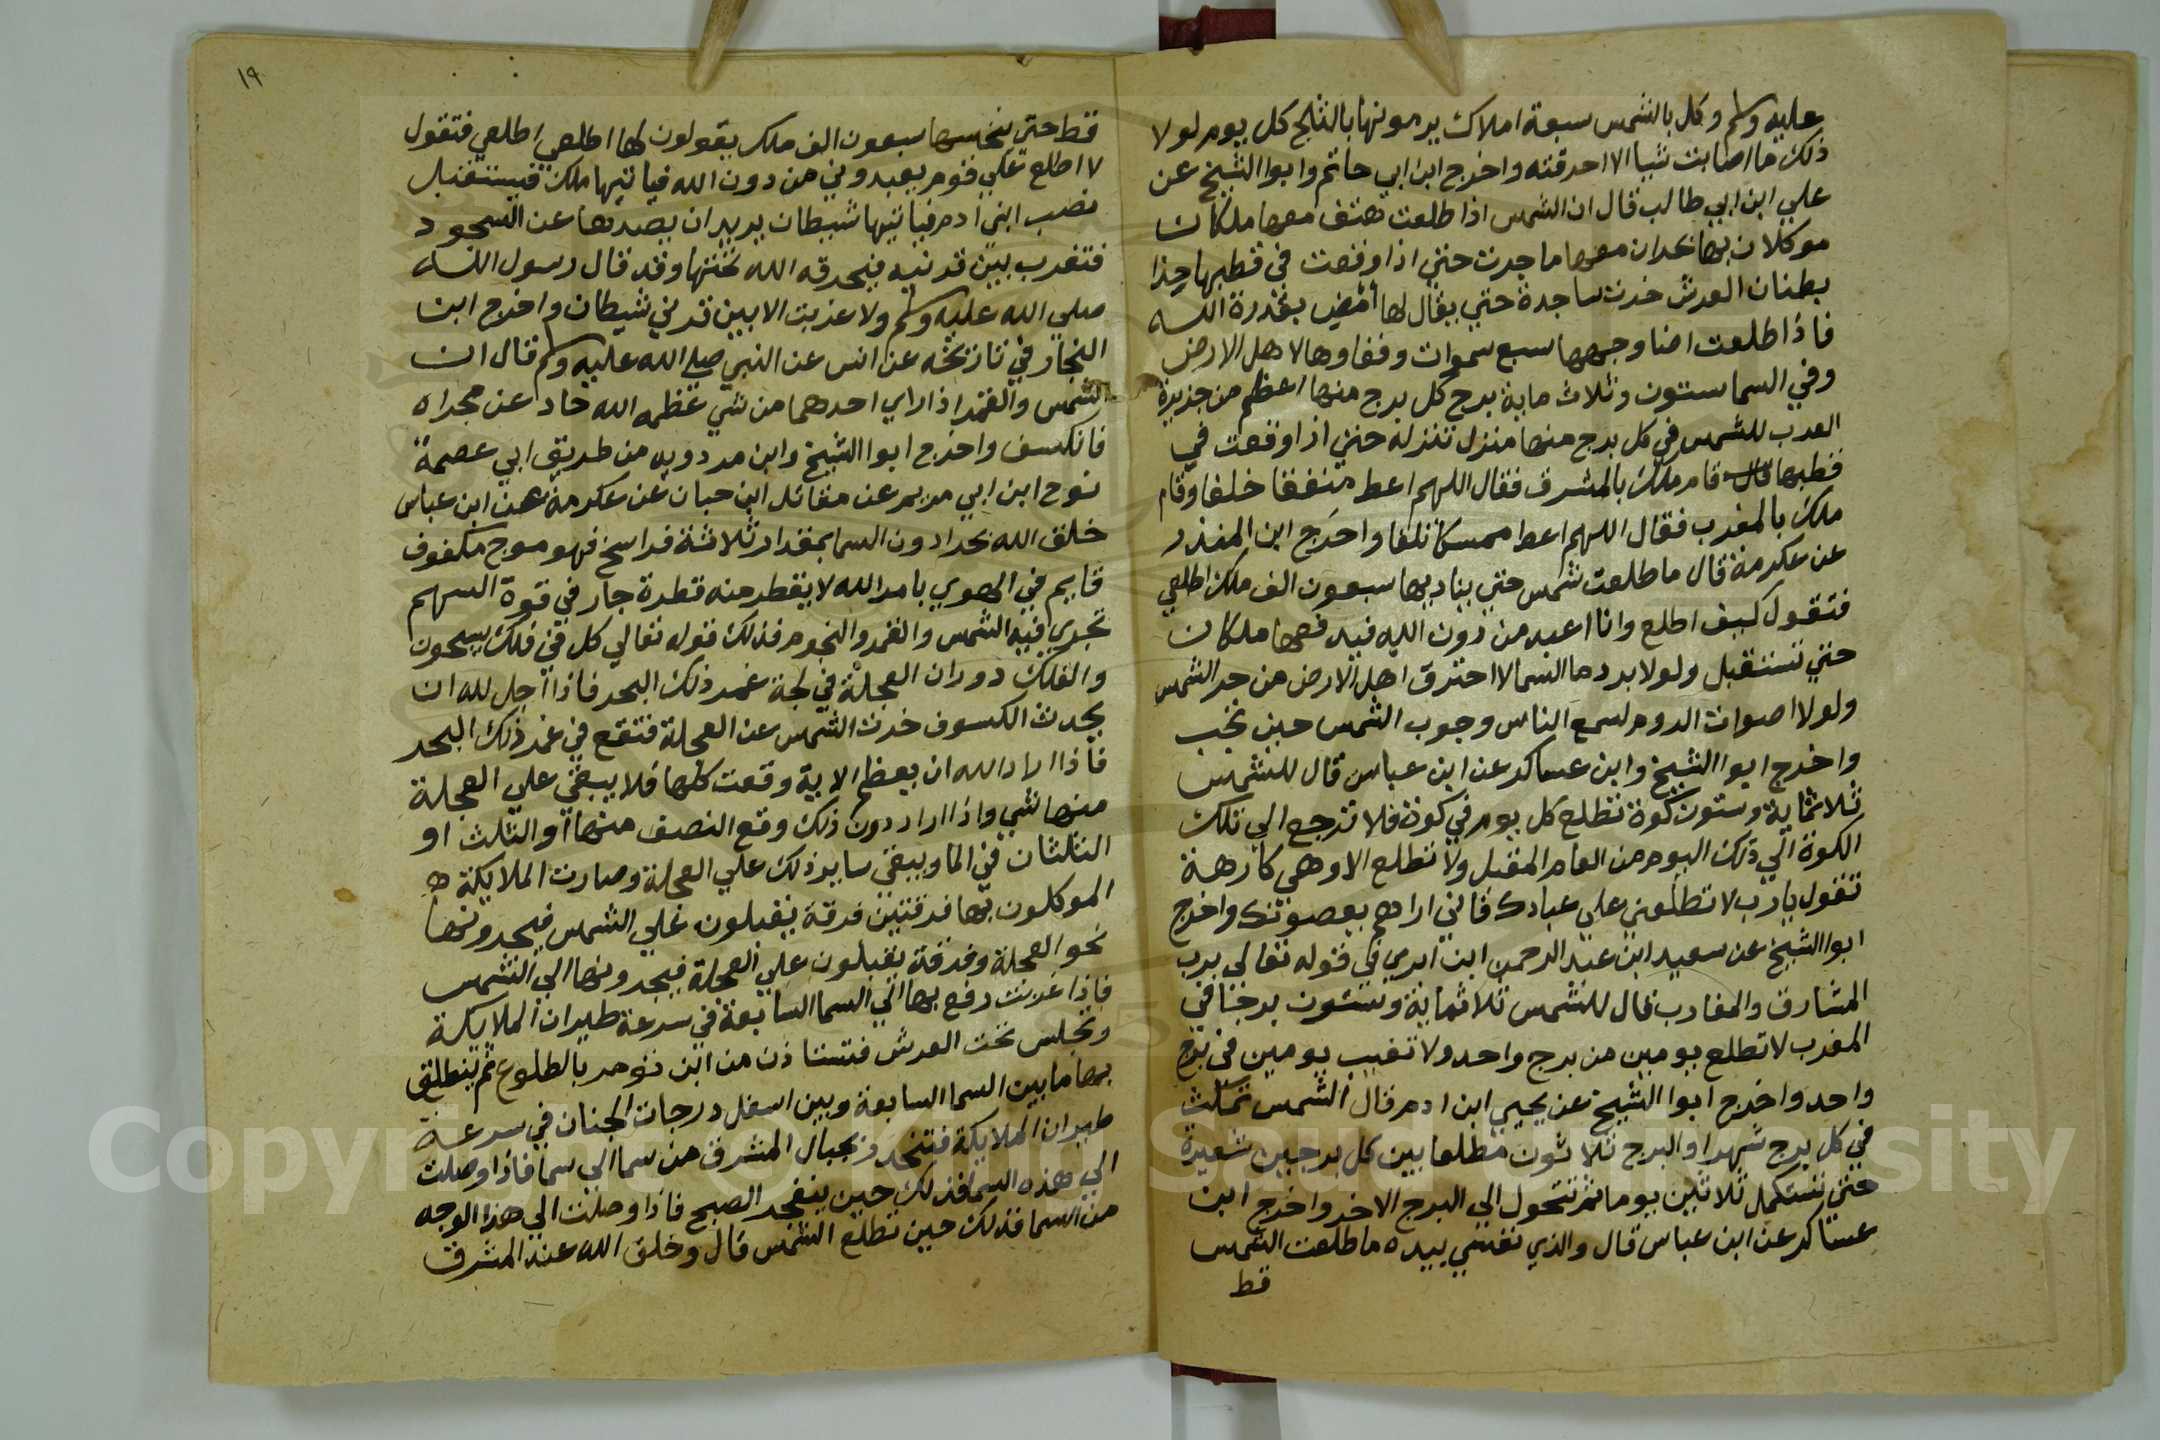 عليه وسلم وكل بالشمس سبعة املاك يرمونها بالثلج كل يوم لولا
ذلك ما اصابت شيا الا احرقته واخرج ابن ابي حاتم وابوا الشيخ عن
علي ابن ابي طالب قال ان الشمس اذا طلعت هتف معها ملكان
موكلان بها يجريان معها ما جرت حتي اذا وقعت في قطبها حذا
بطنان العرش خرت ساجدة حتي يقال لها امضي بقدرة الله
فاذا طلعت اضا وجهها سبع سموات وقفاوها لاهل الارض
وفي السما ستون وثلاث ماية برج كل برج منها اعظم من جزيرة
العرب للشمس في كل برج منها منزل تنزله حتي اذا وقعت في
قطبها قام ملك بالمشرق فقال اللهم اعط منفقا خلفا وقام
ملك بالمغرب فقال اللهم اعط ممسكا تلفا واخرج ابن المنذر
عن عكرمة قال ما طلعت شمس حتي يناديها سبعون الف ملك اطلعي
فتقول كيف اطلع وانا اعبد من دون الله فيد فعها ملكان
حتي تستقبل ولولا برد ما السما لاحترق اهل الارض من حر الشمس
ولولا اصوات الروم لسمع الناس وجوب الشمس حين تجب
واخرج ابوا الشيخ وابن عساكر عن ابن عباس قال للشمس
ثلاثماية وستون كوة تطلع كل يوم في كوة فلا ترجع الي تلك
الكوة الي ذلك اليوم من العام المقبل ولا تطلع الا وهي كارهة
تقول يارب لا تطلعني علي عبادك فاني اراهم يعصونك واخرج
ابوا الشيخ عن سعيد ابن عبد الرحمن ابن ابزي في قوله تعالي برب
المشارق والمغارب قال للشمس ثلاثماية وستون برجا في
المغرب لا تطلع يومين من برج واحد ولا تغيب يومين في برج
واحد واخرج ابوا الشيخ عن يحيي ابن ادم قال الشمس تمكث
في كل برج شهرا والبرج ثلاثون مطلعا بين كل برجين شعيرة
حتي تستكمل ثلاثين يوما ثم تتحول الي البرج الاخر واخرج ابن
عساكر عن ابن عباس قال والذي نفسي بيده ما طلعت الشمس
قط
١٩
قط حتي ينخسها سبعون الف ملك يقولون لها اطلعي اطلعي فتقول
لا اطلع علي قوم يعبدوني من دون الله فياتيها ملك فيستقبل
بني ادم فياتيها شيطان يريد ان يصدها عن السجود
فتغرب بين قرنيه فيحرقه الله تحتها وقد قال رسول الله
صلي الله عليه وسلم ولا غربت الا بين قرني شيطان واخرج ابن
النجار في تاريخه عن انس عن النبي صلي الله عليه وسلم قال ان
الشمس والقمر اذا راي احدهما من شي عظمه الله حاد عن مجراه
فانكسف واخرج ابوا الشيخ وابن مردويه من طريق ابي عصمة
نوح ابن ابي مريم عن مقاتل ابن حيان عن عكرمة عن ابن عباس
خلق الله بحرا دون السما بمقدار ثلاثة فراسخ فهو موج مكفوف
قايم في الهوي بامر الله لا يقطر منه قطرة جار في قوة السهم
تجري فيه الشمس والقمر والنجوم فذلك قوله تعالي كل في فلك يسبحون
والفلك دوران العجلة في لجة غمر ذلك البحر فاذا اجل لله ان
يحدث الكسوف خرت الشمس عن العجلة فتقع في غمر ذلك البحر
فاذا اراد الله ان يعظم الاية وقعت كلها فلا يبقي علي العجلة
منها شي واذا اراد دون ذلك وقع النصف منها او الثلث او
الثلثان في الما ويبقي ساير ذلك علي العجلة وصارت الملايكة
الموكلون بها فرقتين فرقة يقبلون علي الشمس فيجرونها
نحو العجلة وفرقة يقبلون علي العجلة فيجرونها الي الشمس
فاذا غربت رفع بها الي السما السابعة في سرعة طيران الملايكة
وتجلس تحت العرش فتستاذن من اين تومر بالطلوع ثم ينطلق
بها ما بين السما السابعة وبين اسفل درجات الجنان في سرعة
طيران الملايكة فتنحدر بجبال المشرق من سما الي سما فاذا وصلت
الي هذه السما فذلك حين ينفجر الصبح فاذا وصلت الي هذا الوجه
من السما فذلك حين تطلع الشمس قال وخلق الله عند المشرق
Copyright © King Saud University